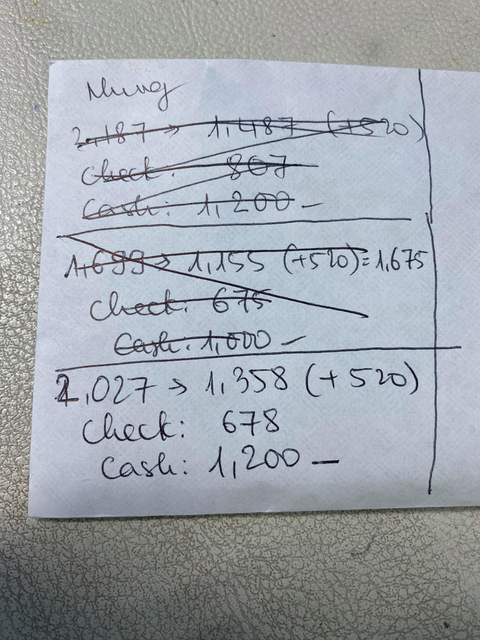 Nhung
2,187 → 1,487 (+520)
Check: 807
Cash: 1,200 —
1,699 → 1,155 (+520) = 1,675
Check: 675
Cash: 1,000 —
2,027 → 1,358 (+520)
Check: 678
Cash: 1,200 —